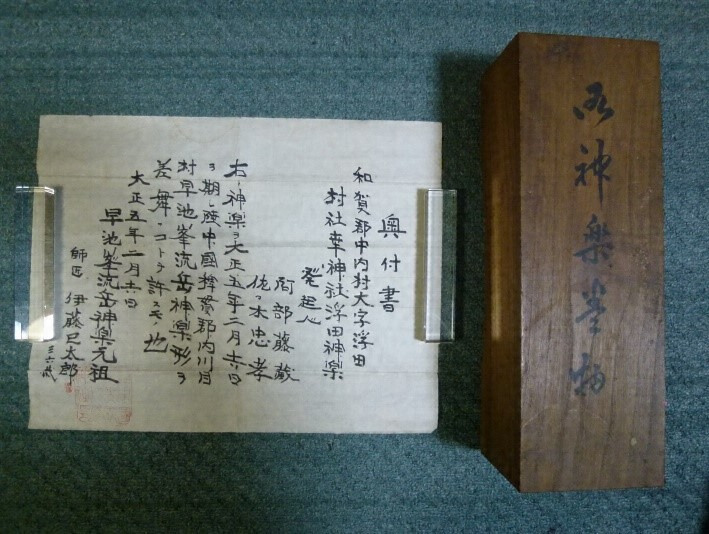 御神楽巻物
奥付書
和賀郡中内村大字浮田
村社幸神社浮田神楽
発起人
阿部藤蔵
佐々木忠孝
右ノ神楽ヲ大正五年二月六日
ヲ期シ陸中國稗貫郡内川目
村早池峯流岳神楽形ヲ
差舞フコトヲ許スモノ也
大正五年二月六日
早池峯流岳神楽元祖
師匠 伊藤巳太郎
三六歳